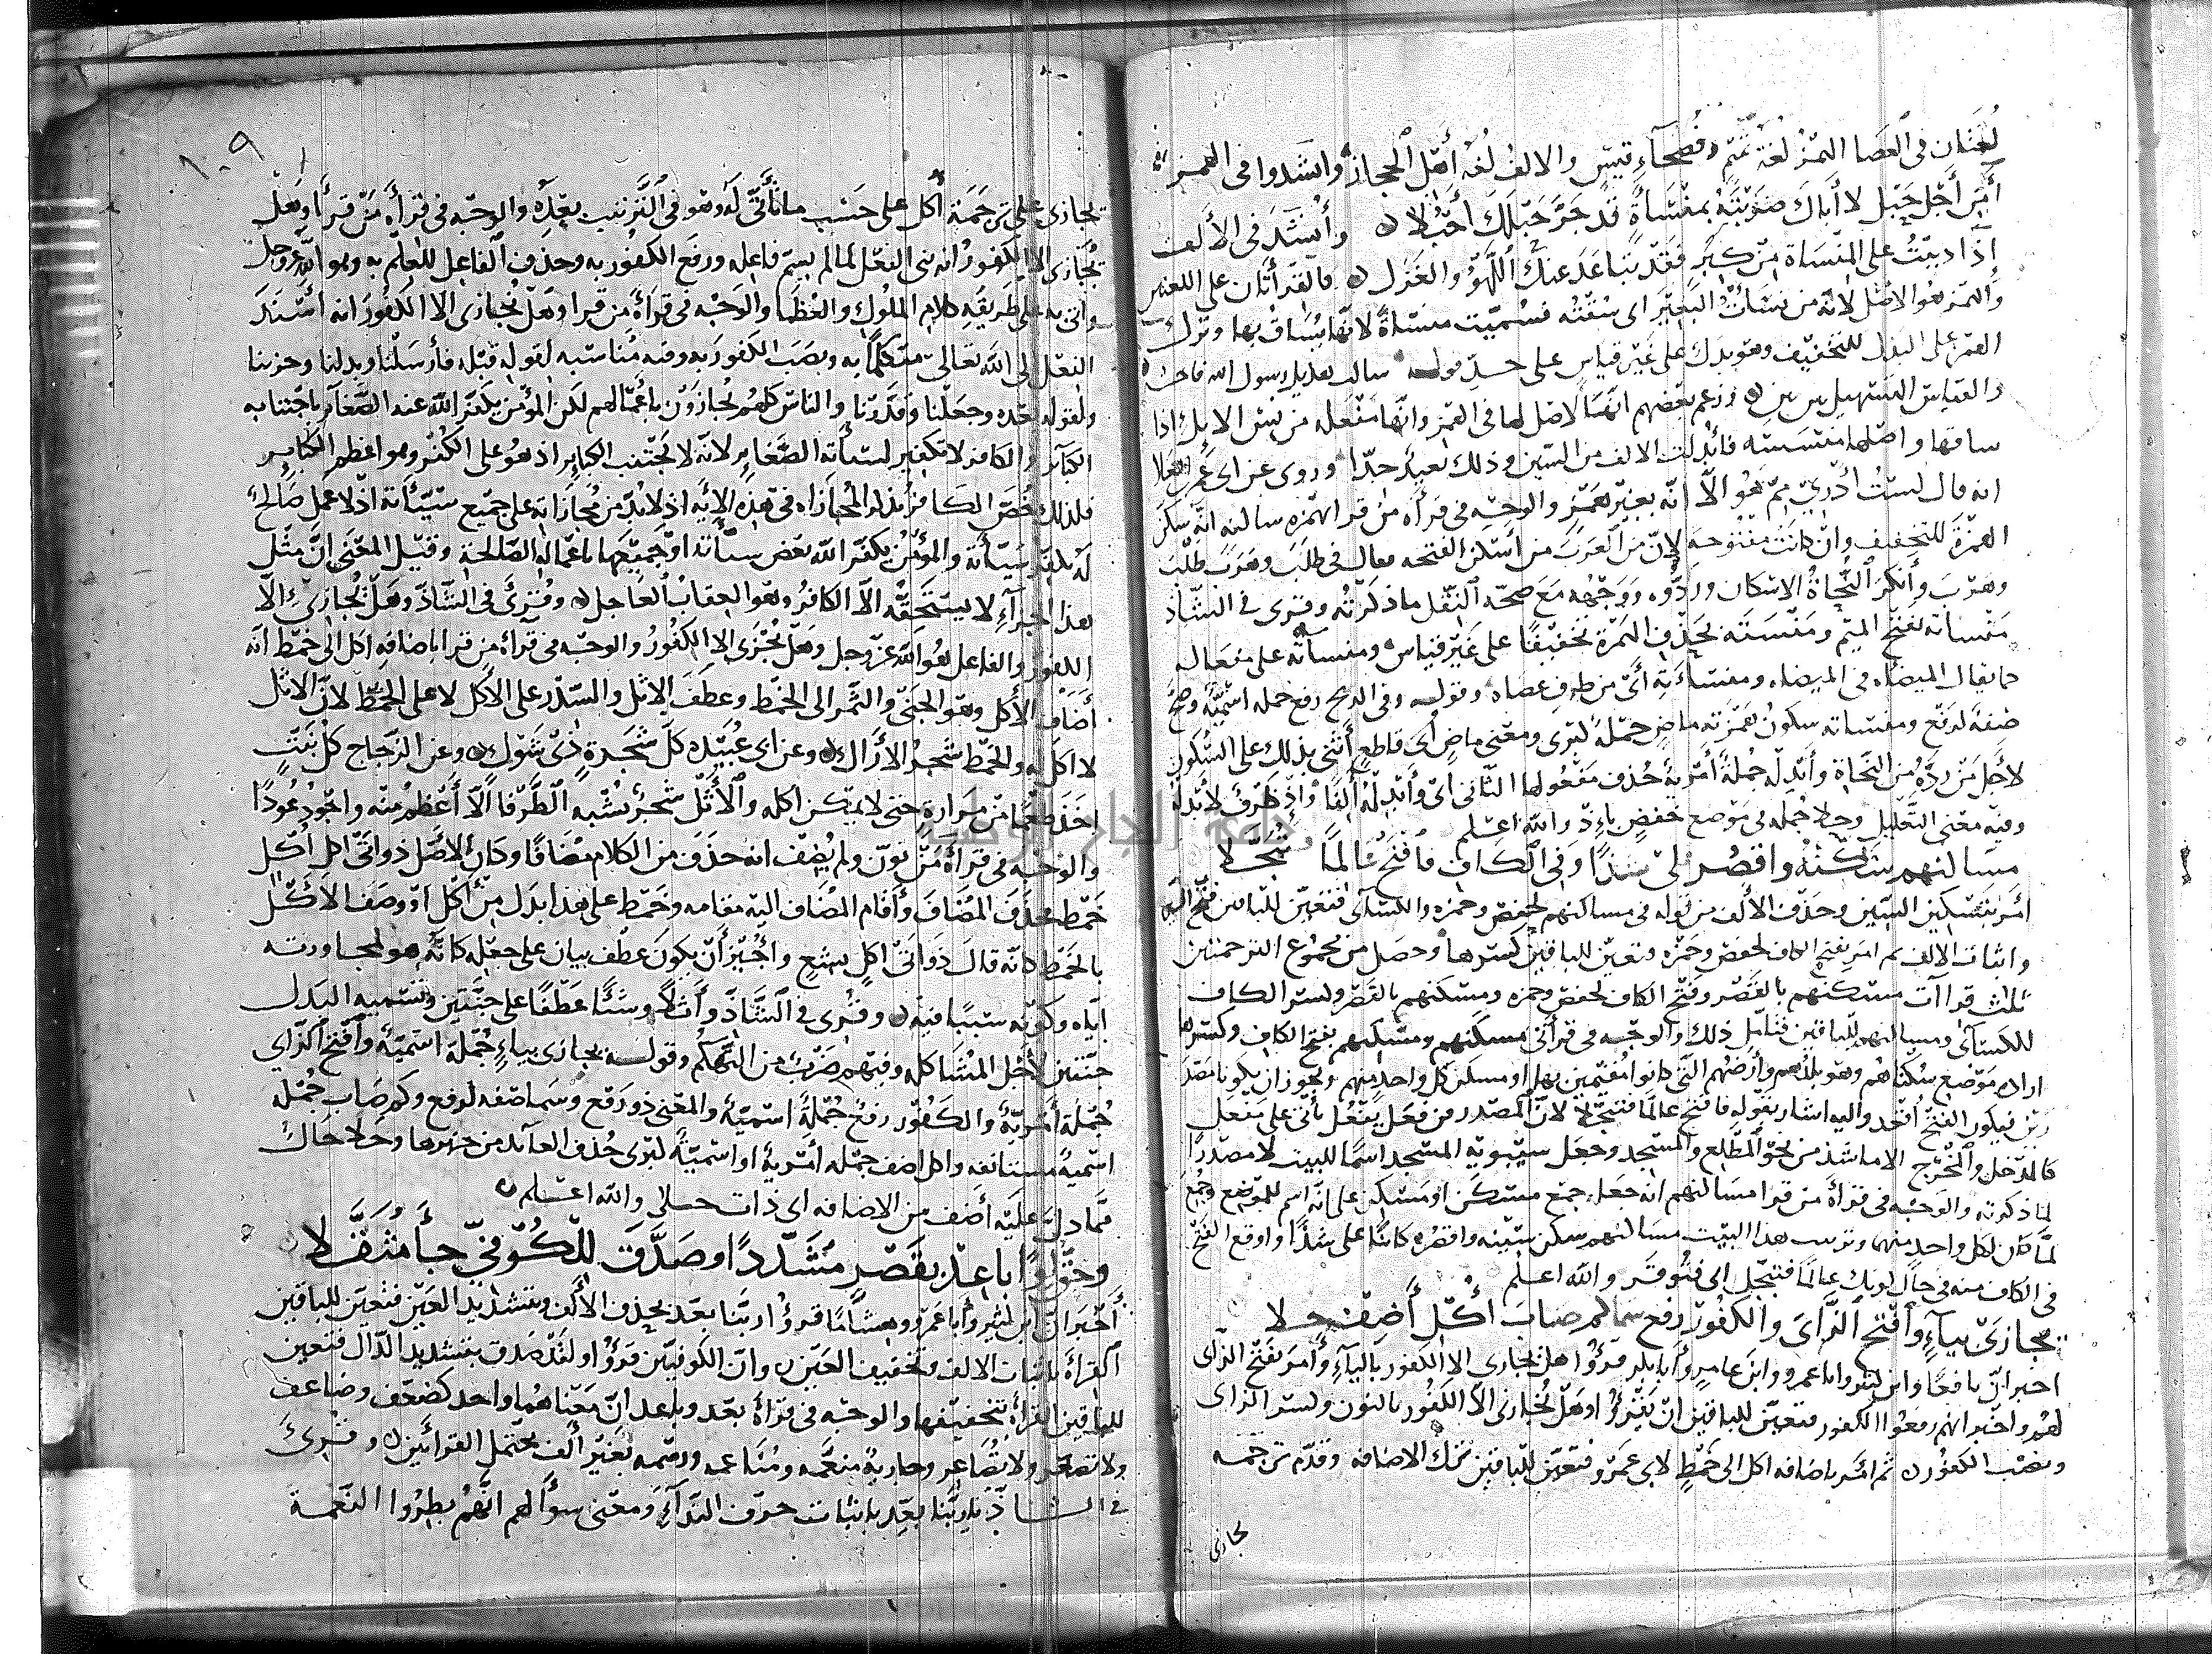 لُغتان في العَصا الهَمْز لغة تميم وفُصحآء قيس والالف لُغة أهل الحجاز وانشدوا في الهمز
أمِن أجْل حَبْل لا أباك ضربتَهُ بمنْسأةٍ قد جَرّ حَبْلك أحبُلا وأنْشَدَ في الألف
إذا دبَبْتَ على المِنْسَاة من كِبَرٍ فقد تباعَدَ عنك اللّهْوُ والغَزَل فالقرأتان على اللغتين
والهمز هو الاصْل لانّه من نسَأتُ البَعيرَ اى سُقْتُه فسُمّيت منسأةً لانّها يُسَاقُ بها وترك
الهمز على البَدل للتخفيف وهو بَدَل على غَيْر قياس على حدّ قوله سالت هذيل رسول الله فاحشة
والقياس التسْهيل بين بين وزعم بعضهم انّهَا لا اصْل لها في الهَمز وانّها مِنْعَله من نسّ الابل اذا
ساقها واصْلها منسَسَه فابُدلت الالف من السّين وذلك بعيد جدّا وروى عن ابى عَمْرو
انه قال لستُ أدْرِى مِمّ هُو الّا انّه بغير هَمْز والوجْه في قرأه من قرا بهمزه ساكنه انّه سكن
الهمزة للتخفيف وان كانت مفتوحه لانّ من العَرَب من أسكن الفتحه فقال في طَلَبَ وهَرَبَ طَلْبَ
وهَرْبَ وأنكر النُّحاةُ الاسكان وردّوه وَوَجْهُه مَعَ صحّه النّقْل ما ذكرتُه وقرى في الشّاذ
مَنساته بفتح الميم ومَنْسَتَه بحَذْف الهمزة تخفيفًا على غير قياس ومنساته على مفعاله
كما يقال الميضاه في الميضاه ومن ساَتِهِ أىْ من طرف عصاه وقوله وفي الريح رفع جمله اسميّة وصحَّ
صفة لرفع ومنساته سكونُ هَمْزته ماضٍ جمْلة كُبرى ومعنى ماضٍ أى قاطع أثنى بذلك على السُّكون
لأجل مَنْ ردَّهُ من النحاة وأبْدِلْه جُملة أمْرِية حُذف مَفعُولها الثاني اى وأبْدِلْهُ ألفًا وإذْ ظرْفٌ لأبْدِلْه
وفيه معنى التّعْليل وحلا جُمله في مَوْضع خفضٍ باِذ والله اعلم
مَساكنهم سَكّنْهُ واقصُر على شذًا وفى الكاف فافتح عالمًا فتُبَجَّلا
امَر بتسْكين السّين وحَذْف الألف من قوله في مساكنهم لحفص وحمزه والكسائى فتعَيّن للباقين فتح السين
واثبات الالف ثم امر بفتح الكاف لحفص وحَمْزه وتعيّن للباقين كسْرها وحصل من مجموع الترجمتين
ثلاث قراآت مسكنهم بالقَصْر وفتْح الكاف لحفص وحمزه ومسكنهم بالقصر وكسر الكاف
للكسائى ومساكنهم للباقين فتأمّل ذلك والوجْه في قرأتى مسكنهم ومسْكِنهم بفتح الكاف وكسرها
اراده مَوْضع سُكناهُم وهو بلدُهم وأرضُهم الّتى كانوا مُقيمين بها او مسكن كل واحد منهم ويجوز ان يكونا مصْدَ
رَيْن فيكون الفتح أقعَد واليه اشار بقوله فافتح عالمًا فتبجّلا لانّ المصْدر من فَعَل يَفعُل يأتى على مَفعَل
كالمدْخل والمُخْرَج الا ما شذ من نحو المَطلِع والمَسجِد وجعل سيبويه المَسْجِد اسمًا للبيت لا مصْدرًا
لما ذكرته والوَجه في قرأة من قرا مَساكنهم انه جَعَله جمع مسْكَن او مَسْكِن على انّه اسم للموضع وجمع
لمّا كان لكل واحد منهم وترتيب هذا البيت مساكنهم سكن سِينه واقصُره كائنًا على شذًا واوقع الفتح
في الكاف منه في حَال كونك عالمًا فتُبَجّل اى فتُوقر والله اعلم
يجازى بياءٍ وافتح الزّاىَ والكفُورُ رَفعٌ سما كم صابَ أُكْلِ أَضِفْ حلا
اخبر انّ نافعًا وابن كثير وابا عمرو وابن عامر وأبا بكر قرؤا هل يجازى الا الكفور بالياءِ وأمَر بفَتْح الزّاى
لهم واخبر انهم رفعُوا الكفور فتعيّن للباقين ان يقرؤا وهَلْ نُجازى الّا الكفُور بالنون وكسر الزاى
ونصب الكفُور ثم امَر باضافه اكل الى خَمْطٍ لابى عَمْرٍو فتعَيّن للباقين ترك الاضافه وقدّم ترجمه
يجازى
١٠٩
يجازى على ترجَمة أكل على حَسْب ما تأتّى لَه وهو في التّرتيب بعده والوجْه في قرأه مَنْ قرأ وهَلْ
يُجازَى الا الكفُورُ انه بنى الفعْل لما لم يسمّ فاعله ورفع الكفُور به وحذف الفاعِل للعِلْم به وهو الله عز وجل
وأتى به على طريقَه كلام المُلوك والعُظما والوَجْه في قرأة من قرا وهَلْ نُجازى الا الكَفُورَ انه أسْنَدَ
الفعْل الى الله تعالى متكلّمًا به ونصَبَ الكفورَ به وفيه مُناسَبه لقوله قبْله فأرسَلْنا وبدلنا وجزينا
ولقوله بعْده وجعَلْنا وقَدَّرْنا والناس كلهُم يُجازَوْن باعْمالهم لكن المؤمن يكفّر الله عنه الصّغآئر باجتنابه
الكبآئر والكافر لا تكفير لسيئاته الصَّغاير لانّه لا يَجْتنب الكباير اذ هُو على الكُفر وهو اعظم الكباير
فلذلك خُصّ الكافر بذكر المُجازاه في هذه الايَه اذ لا بدّ من مُجازاته على جَميع سيّئاته اذْ لا عَمل صالحً
له يكفّر سيّئاته والمؤمنُ يكفّر الله بعض سيّأته أو جميعَها باعْماله الصّالحة وقيل المعنى انّ مثْل
هذا الجزآء لا يستحقّه الّا الكافرُ وهو العقابُ العاجل وقُرِئَ في الشّاذّ وهَلْ يُجازِى الّا
الكفور والفاعل هو الله عزّ وجل وهَل يُجْزَى الا الكفُورُ والوجْه في قرأة من قرا باضافه اكل الى خَمْط انّه
أضاف الأكل وهو الجَنَى والثّمر الى الخمْط وعطَفَ الاثل والسّدْر على الأكل لا على الخمْط لانّ الاثْل
لا اكل له والخَمْط شجرُ الأرَاك وعن ابى عُبَيْده كلّ شجَرةٍ ذى شَوْك وعن الزّجاج كلّ نَبْتٍ
اخَذ طَعْمًا من مَرَارةٍ حتى لا يمْكن اكله والأثْل شَجرٌ يُشْبه الطّرْفا الّا أعْظم منْه واجْود عُودًا
والوَجْه في قرأة مَنْ نوّن ولم يُضِفْ انه حذَف من الكلام مُضَافًا وكان الأصْل ذواتَىْ اكل أكْل
خَمْط فحذَفَ المُضَافَ وأقام المُضَاف اليْه مقامه وخَمْط على هذا بَدل منْ أكْل أو وصَف الأكْل
بالخَمْط كانّه قال ذَواتَىْ اكلٍ بشِعٍ واجُيْز أنْ يكونَ عطْف بيان على جعْله كانّه هو لمجاورته
ايّاه وكوْنه سببًا فيه وقُرِى في الشّاذّ وأثْلًا وشَيْئًا عَطْفًا على جنّتَيْن وتسْميه البَدَل
جنّتين لأجْل المُشَاكله وفيه ضَرْبٌ من التّهكُّم وقوله يجازى بياءٍ جُمْلة اسميّة وافتح الزّاى
جُمْلة أمْريّةٌ والكفُورُ رفعٌ جُمْلةٌ اسْميّةٌ والمعْنى ذو رَفع وسَما صفه لرفع وكم صَاب جُمله
اسْميةً مستانفه واكل اضف جمْله أمْرية او اسْميّة كُبرى حُذف العآئد من خبرها وحلا حَالٌ
ممّا دلّ عليْه أضف من الاضافه اى ذات حلًا والله اعلم
وحَقُّ لِوًا باعِدْ بقَصْرٍ مُشَدّدًا وصَدَّقَ للكُوفىّ جآءَ مُثقَّلا
أخْبَر انّ ابن كثير وأبا عَمْرو وهشامًا قرؤا ربّنا بعّد بحذف الألف وبتشديد العَيْن فتعيّن للباقين
القرأة باثبات الالف وتخفيف العَيْن وانّ الكوفيّين قرؤا ولقد صَدّق بتشديد الدّال فتعين
للباقين القرأة بتخفيفها والوجْه في قرأة بعّد وباعد انّ مَعْناهُما واحد كضعّف وضاعف
ولا تصعّر ولا تصاعِر وجارية منعّمه ومُنَاعمه ورسْمه بغَيْر ألف يحتمل القرأتين وقُرِئ
في الشاذّ يا ربّنا بعّد باثبات حرف النّدآء ومعنى سؤالهم انّهُمْ بطِرُوا النّعْمة